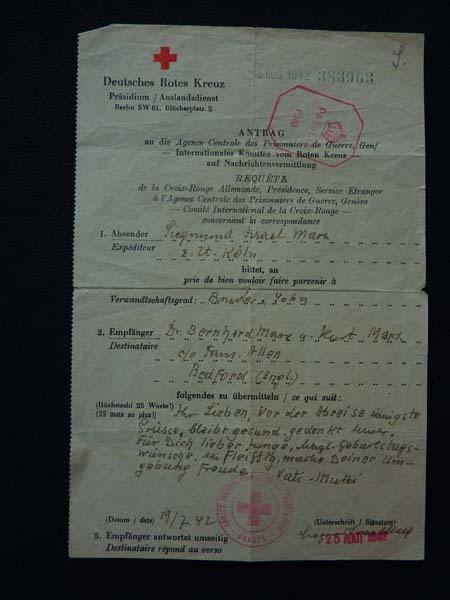 S.
Deutsches Rotes Kreuz
Präsidium / Auslandsdienst
Berlin SW 61, Blücherplatz 2
AUG. 1942 383903
PASSED
ANTRAG
an die Agence Centrale des Prisonniers de Guerre, Genf
— Internationales Komitee vom Roten Kreuz —
auf Nachrichtenvermittlung
REQUÊTE
de la Croix-Rouge Allemande, Présidence, Service Etranger
à l'Agence Centrale des Prisonniers de Guerre, Genève
— Comité International de la Croix-Rouge —
concernant la correspondance
1. Absender Siegmund Israel Marx
Expéditeur z. Zt. Köln
bittet, an
prie de bien vouloir faire parvenir à
Verwandtschaftsgrad: Bruder u. Sohn
2. Empfänger Dr. Bernhard Marx u. Kurt Marx
Destinataire c/o Fam. Allen
Bedford (Engl.)
folgendes zu übermitteln / ce qui suit:
(Höchstzahl 25 Worte!)
(25 mots au plus!)
Ihr Lieben, vor der Abreise innigste
Grüsse, bleibt gesund, gedenkt unser.
Für Dich lieber Junge, Geburtstags-
wünsche, sei fleissig, mache Deiner Um-
gebung Freude. Vati - Mutti
(Datum / date) 19/7 42
(Unterschrift / Signature)
25 AOUT 1942
3. Empfänger antwortet umseitig
Destinataire répond au verso